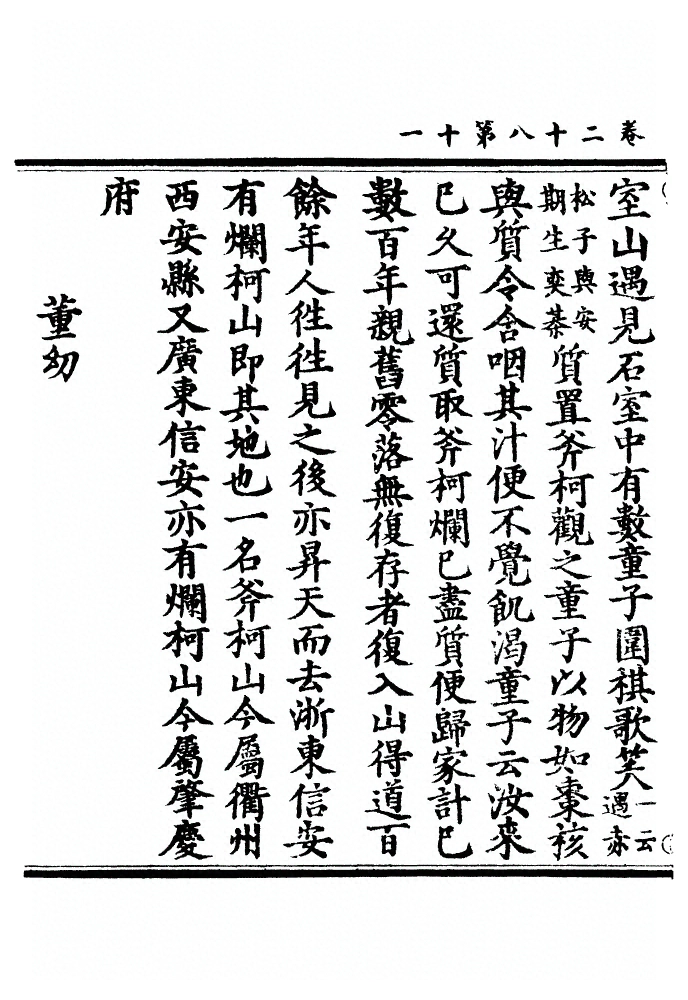 卷二十八第十一
室山遇見石室中有數童子圍祺歌笑一云遇赤
松子與安期生奕棊質置斧柯觀之童子以物如棗核
與質令含咽其汁便不覺飢渴童子云汝來
已久可還質取斧柯爛已盡質便歸家計已
數百年親舊零落無復存者復入山得道百
餘年人徃徃見之後亦昇天而去浙東信安
有爛柯山即其地也一名斧柯山今屬衢州
西安縣又廣東信安亦有爛柯山今屬肇慶
府
董幼